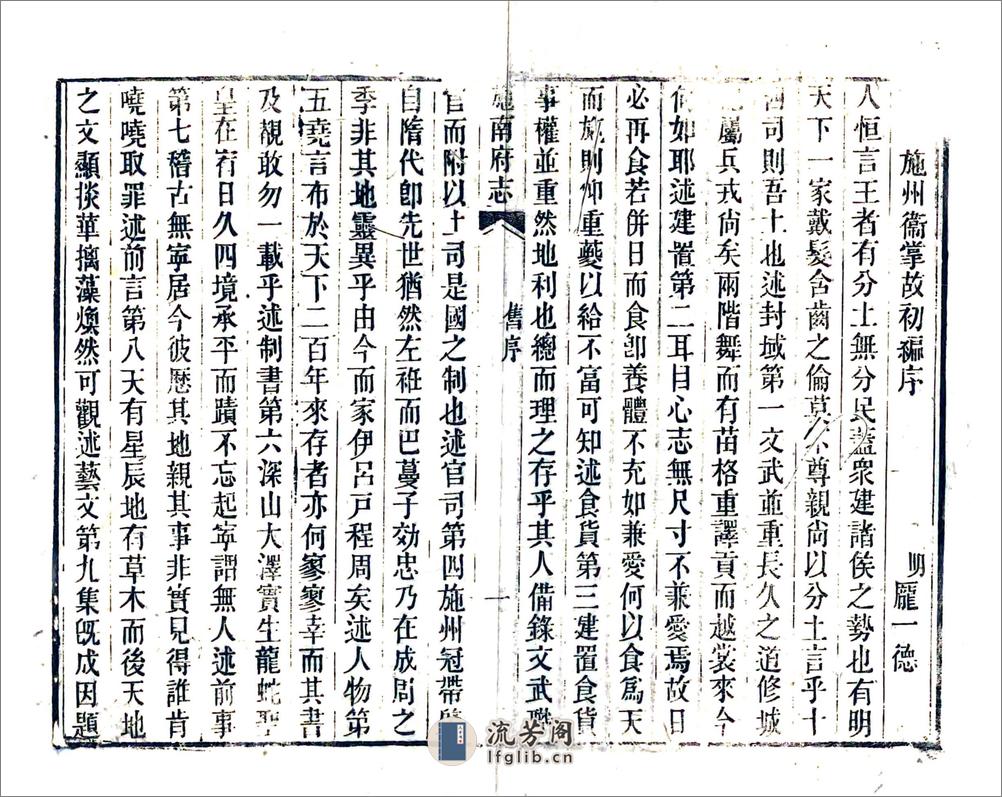 施州衞掌故初編序
明 龎一德
人恒言王者有分土無分民蓋衆建諸侯之勢也有明
天下一家戴髮含齒之倫莫不尊親尚以分土言乎十
司則吾土也述封域第一文武並重長久之道修城
屬兵戎尚矣兩階舞而有苗格重譯貢而越裳來今
何如耶述建置第二耳目心志無尺寸不兼愛焉故日
必再食若併日而食卽養體不充如兼愛何以食爲天
而施則仰重夔以給不富可知述食貨第三建置食貨
事權並重然地利也總而理之存乎其人備錄文武
施南府志
舊序
一
官而附以土司是國之制也述官司第四施州冠帶
自隋代卽先世猶然左袵而巴蔓子効忠乃在成周之
季非其地靈異乎由今而家伊呂戸程周矣述人物第
五堯言布於天下二百年來存者亦何寥寥幸而其書
及覩敢勿一載乎述制書第六深山大澤實生龍蛇聖
皇在宥日久四境承平而蹟不忘起寧謂無人述前事
第七稽古無寧居今彼歷其地親其事非實見得誰肯
嘵嘵取罪述前言第八天有星辰地有草木而後天地
之文顯掞華摛藻煥然可觀述藝文第九集旣成因題
流芳阁
lfglib.cn